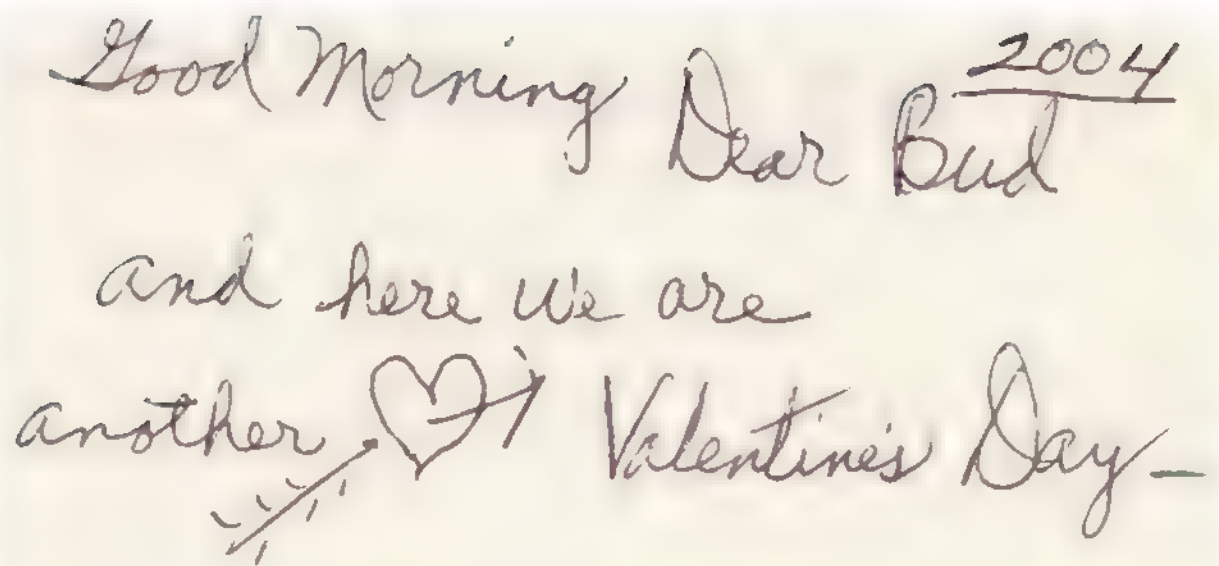 2004
Good Morning Dear Bud
and here we are
another Valentine's Day —